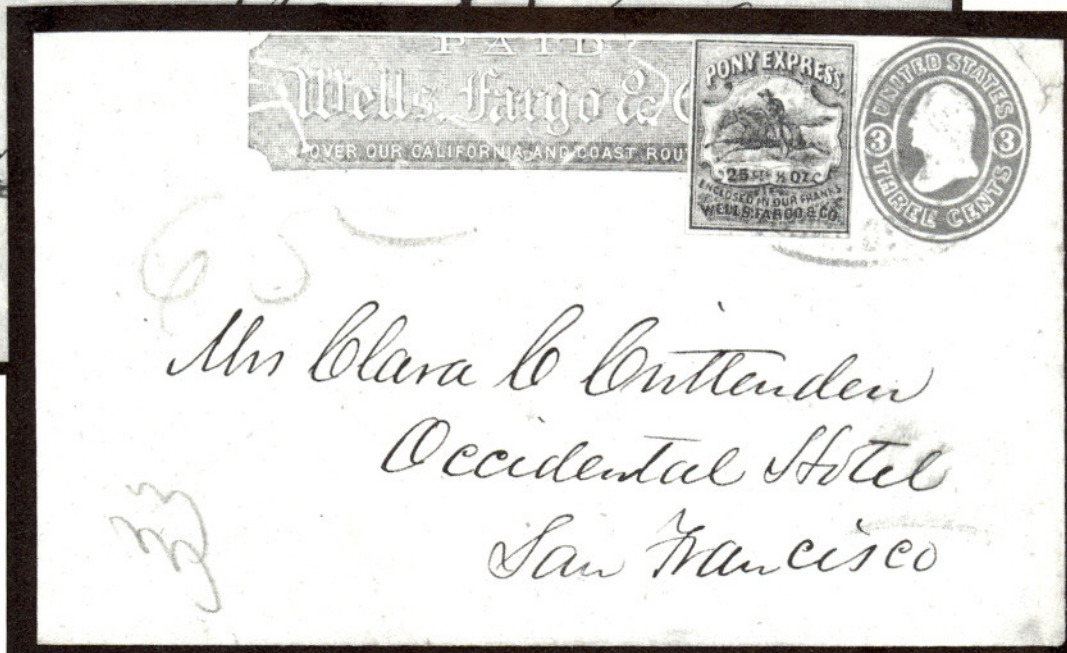 PAID
Wells, Fargo &
OVER OUR CALIFORNIA AND COAST ROU
PONY EXPRESS.
25 cts ½ OZ
ENCLOSED IN OUR FRANKS
WELLS, FARGO & CO.
UNITED STATES
3 3
THREE CENTS
Mrs Clara C Crittenden
Occidental Hotel
San Francisco